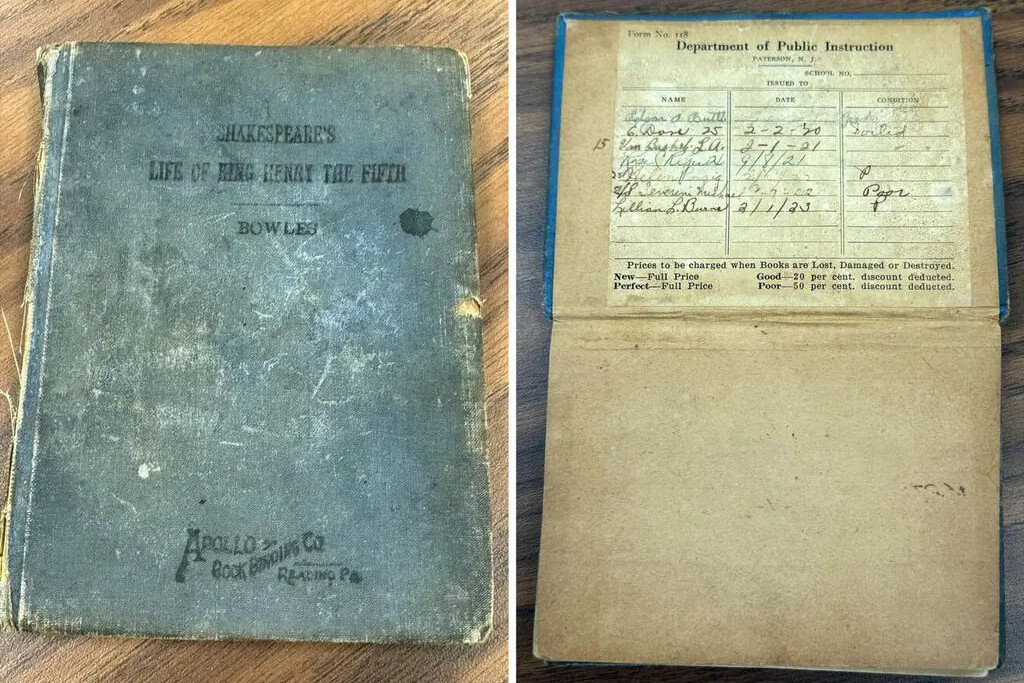 SHAKESPEARE'S
LIFE OF KING HENRY THE FIFTH
BOWLES
APOLLO
BOOK BINDING CO
READING PA.
Form No. 118
Department of Public Instruction
PATERSON, N. J.
SCHOOL NO.
ISSUED TO
NAME DATE CONDITION
E. Dore 25 2-2-'20 soiled
15 L.A. 2-1-21
9/8/21
P
Severini Poor
Lillian L. Burns 2/1/23 P
Prices to be charged when Books are Lost, Damaged or Destroyed.
New—Full Price Good—20 per cent. discount deducted.
Perfect—Full Price Poor—50 per cent. discount deducted.